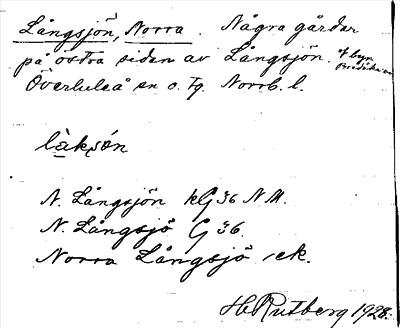 Långsjön, Norra. Några gårdar
på östra sidan av Långsjön. af byn
Överluleå sn o. tg. Norrb. l.
N. Långsjön kG 36 NM.
N. Långsjö G 36.
Norra Långsjö ek.
H. Rutberg 1928.